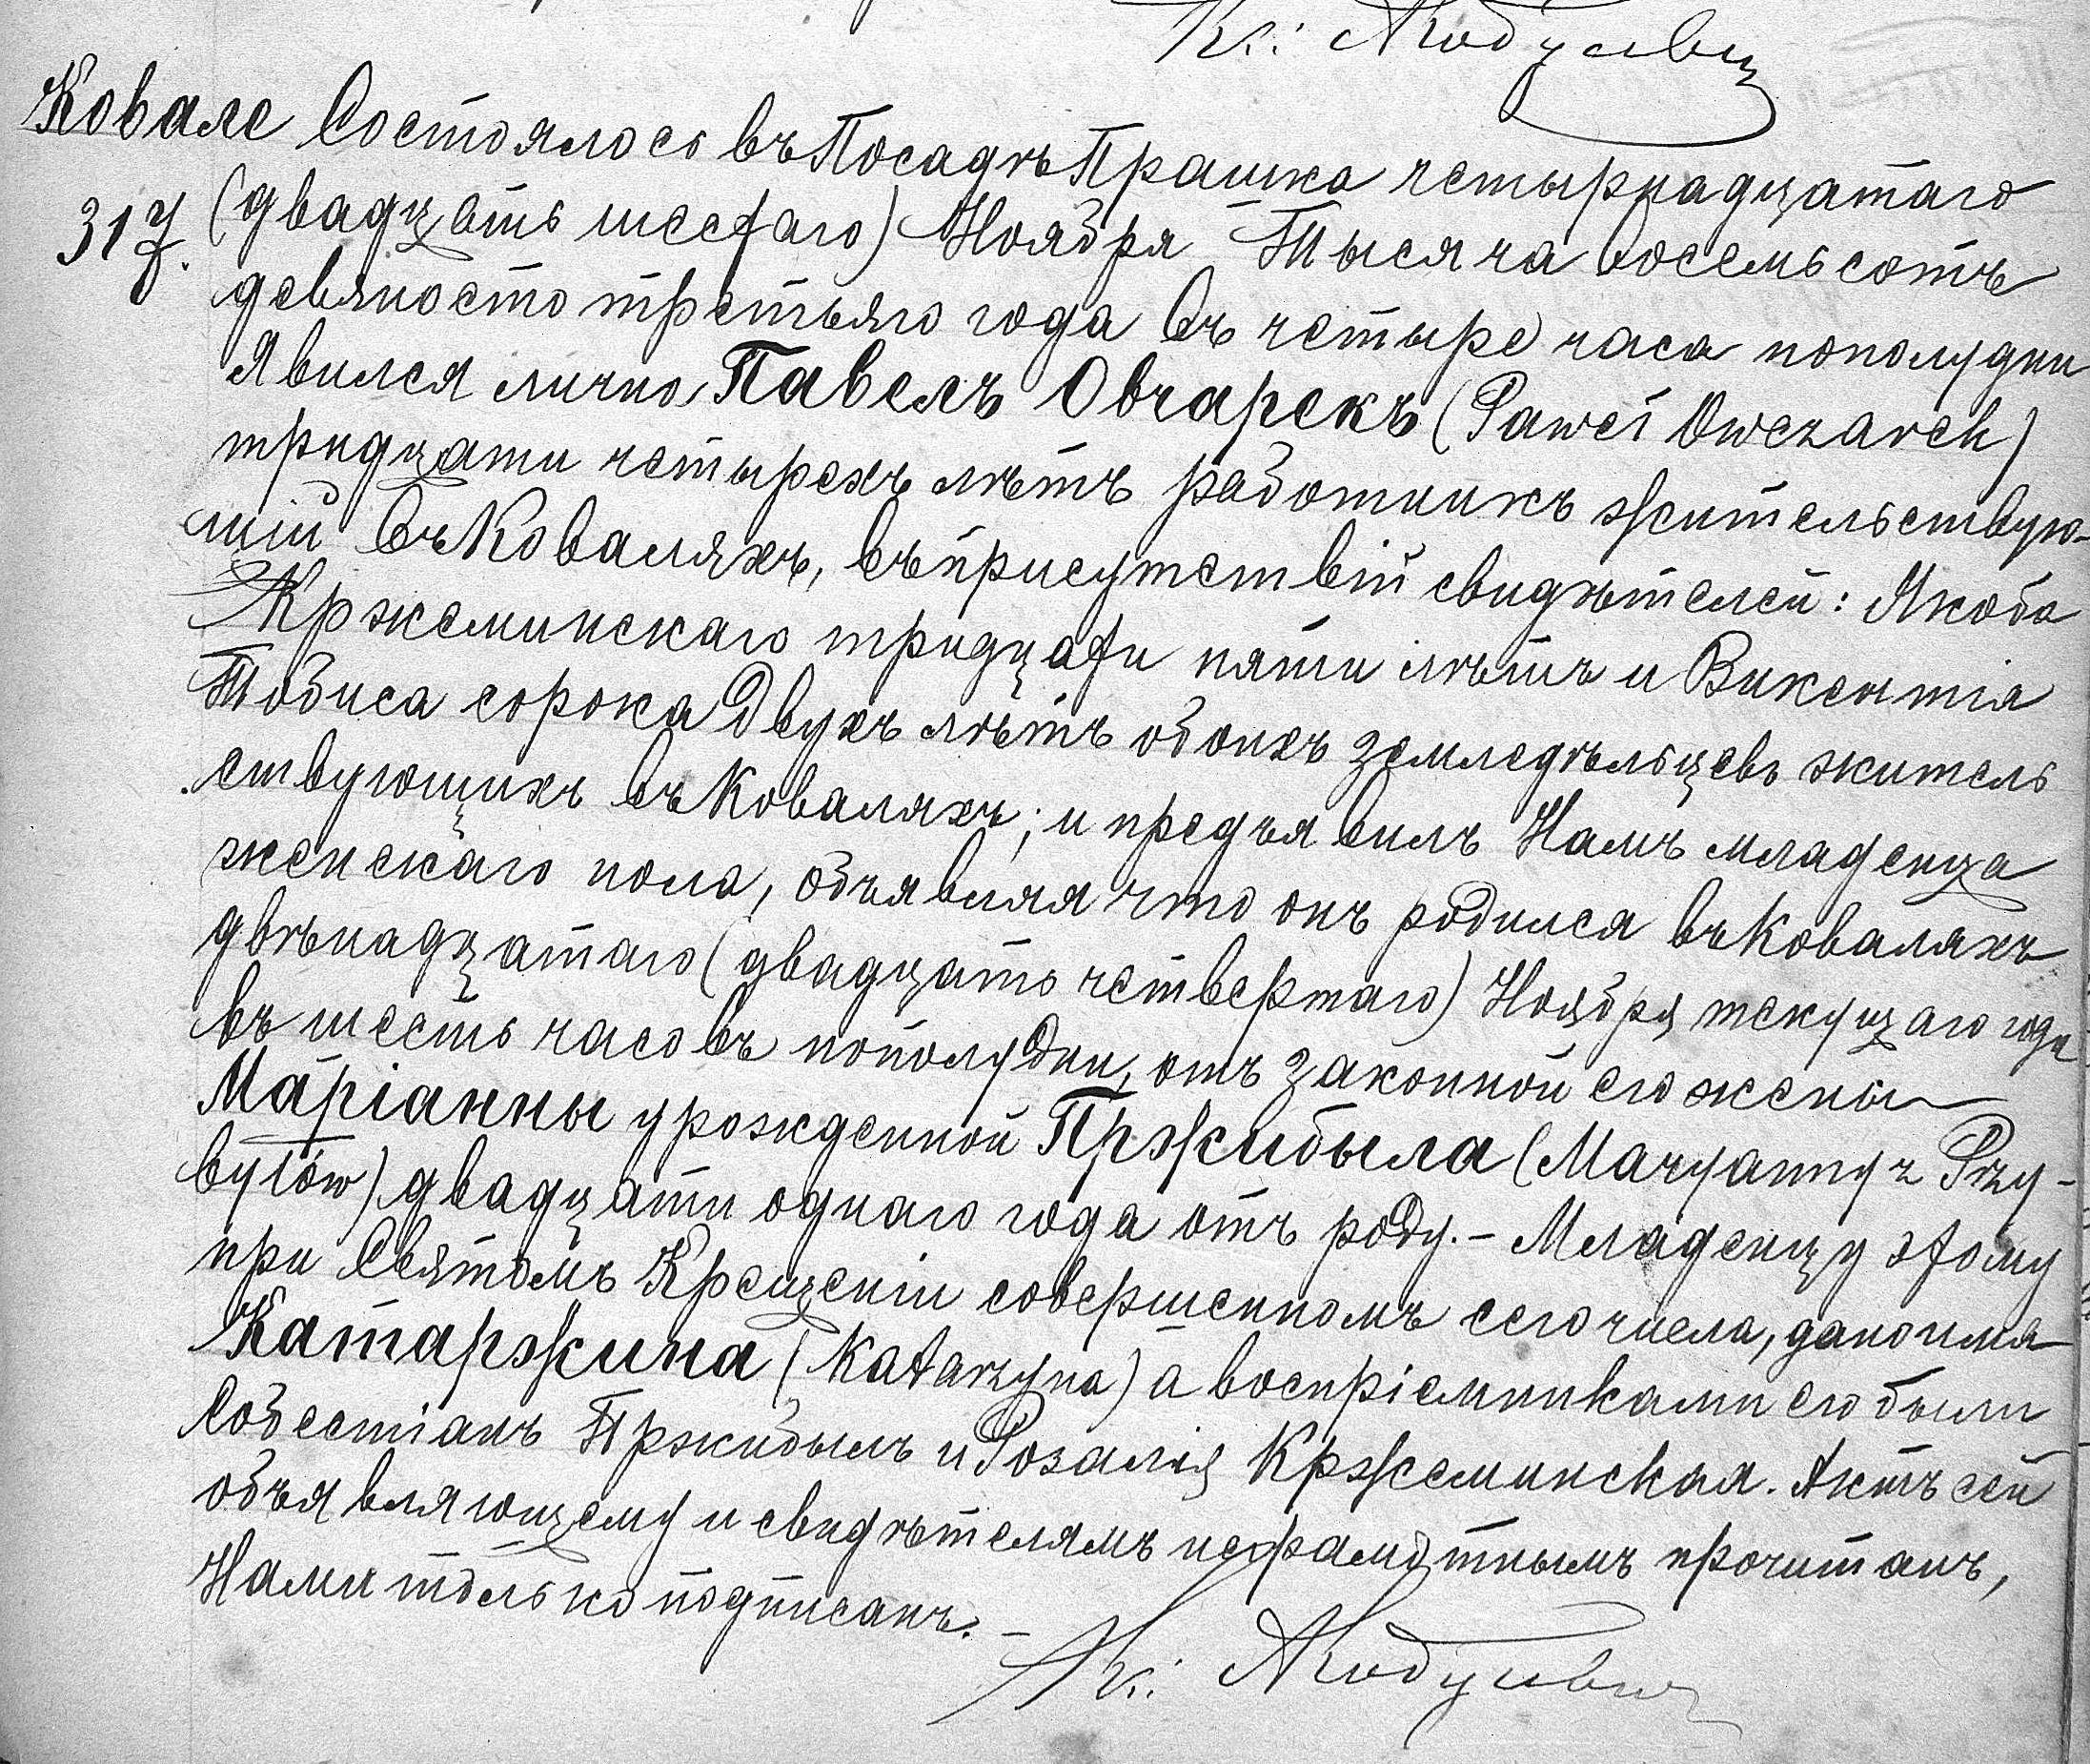 Кс:
Ковале Состоялось въ Посадѣ Прашка четырнадцатаго
317. (двадцать шестаго) Ноября Тысяча восемьсотъ
девяносто третьяго года въ четыре часа пополудни
Явился лично Павелъ Овчарекъ (Paweł Owczarek)
тридцати четырехъ лѣтъ работникъ жительствую-
щій въ Коваляхъ, въ присутствій свидѣтелей: Якоба
Кржеминскаго тридцати пяти лѣтъ и Викентія
Тобиса сорока двухъ лѣтъ обоихъ земледѣльцевъ житель
ствующихъ въ Коваляхъ; и предъявилъ Намъ младенца
женскаго пола, объявляя что онъ родился въ Коваляхъ
двѣнадцатаго (двадцать четвертаго) Ноября текущаго года
въ шесть часовъ пополудни, отъ законной его жены
Маріанны урожденной Пржибыла (Maryanny z Przy-
byłów) двадцати одного года отъ роду. - Младенцу этому
при Святомъ Крещеніи совершенномъ сего числа, дано имя
Катаржина (Katarzyna) а воспріемниками его были
Собестіанъ Пржибылъ и Розалія Кржеминская. Актъ сей
объявляющему и свидѣтелямъ неграмотнымъ прочитанъ,
Нами только подписанъ. -
Кс: